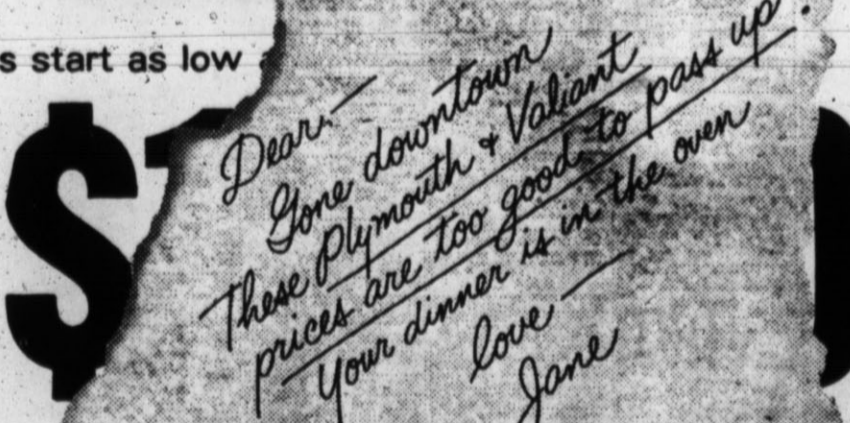 s start as low
$
Dear,—
Gone downtown
These Plymouth & Valiant
prices are too good to pass up!
Your dinner is in the oven
love—
Jane